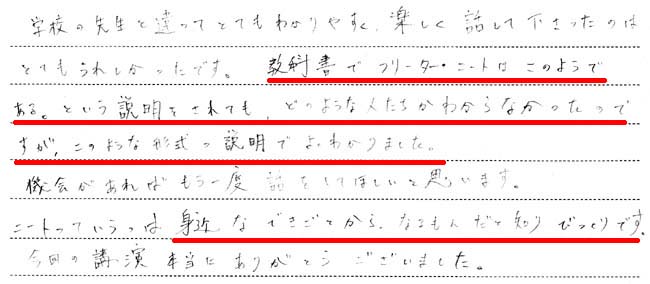 学校の先生と違ってとてもわかりやすく、楽しく話して下さったのは
とてもうれしかったです。 教科書でフリーター・ニートはこのようで
ある。という説明をされても、どのような人たちかわからなかったので
すが、このような形式の説明でよくわかりました。
機会があればもう一度話をしてほしいと思います。
ニートっていうのは身近なできごとから、なるもんだと知りびっくりです。
今回の講演本当にありがとうございました。